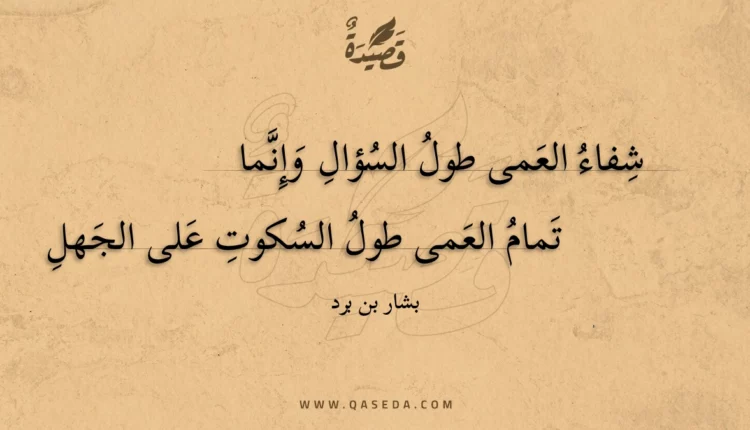 قَصِيْدَةٌ
شِفاءُ العَمى طولُ السُؤالِ وَإِنَّما
تَمامُ العَمى طولُ السُكوتِ عَلى الجَهلِ
بشار بن برد
WWW.QASEDA.COM